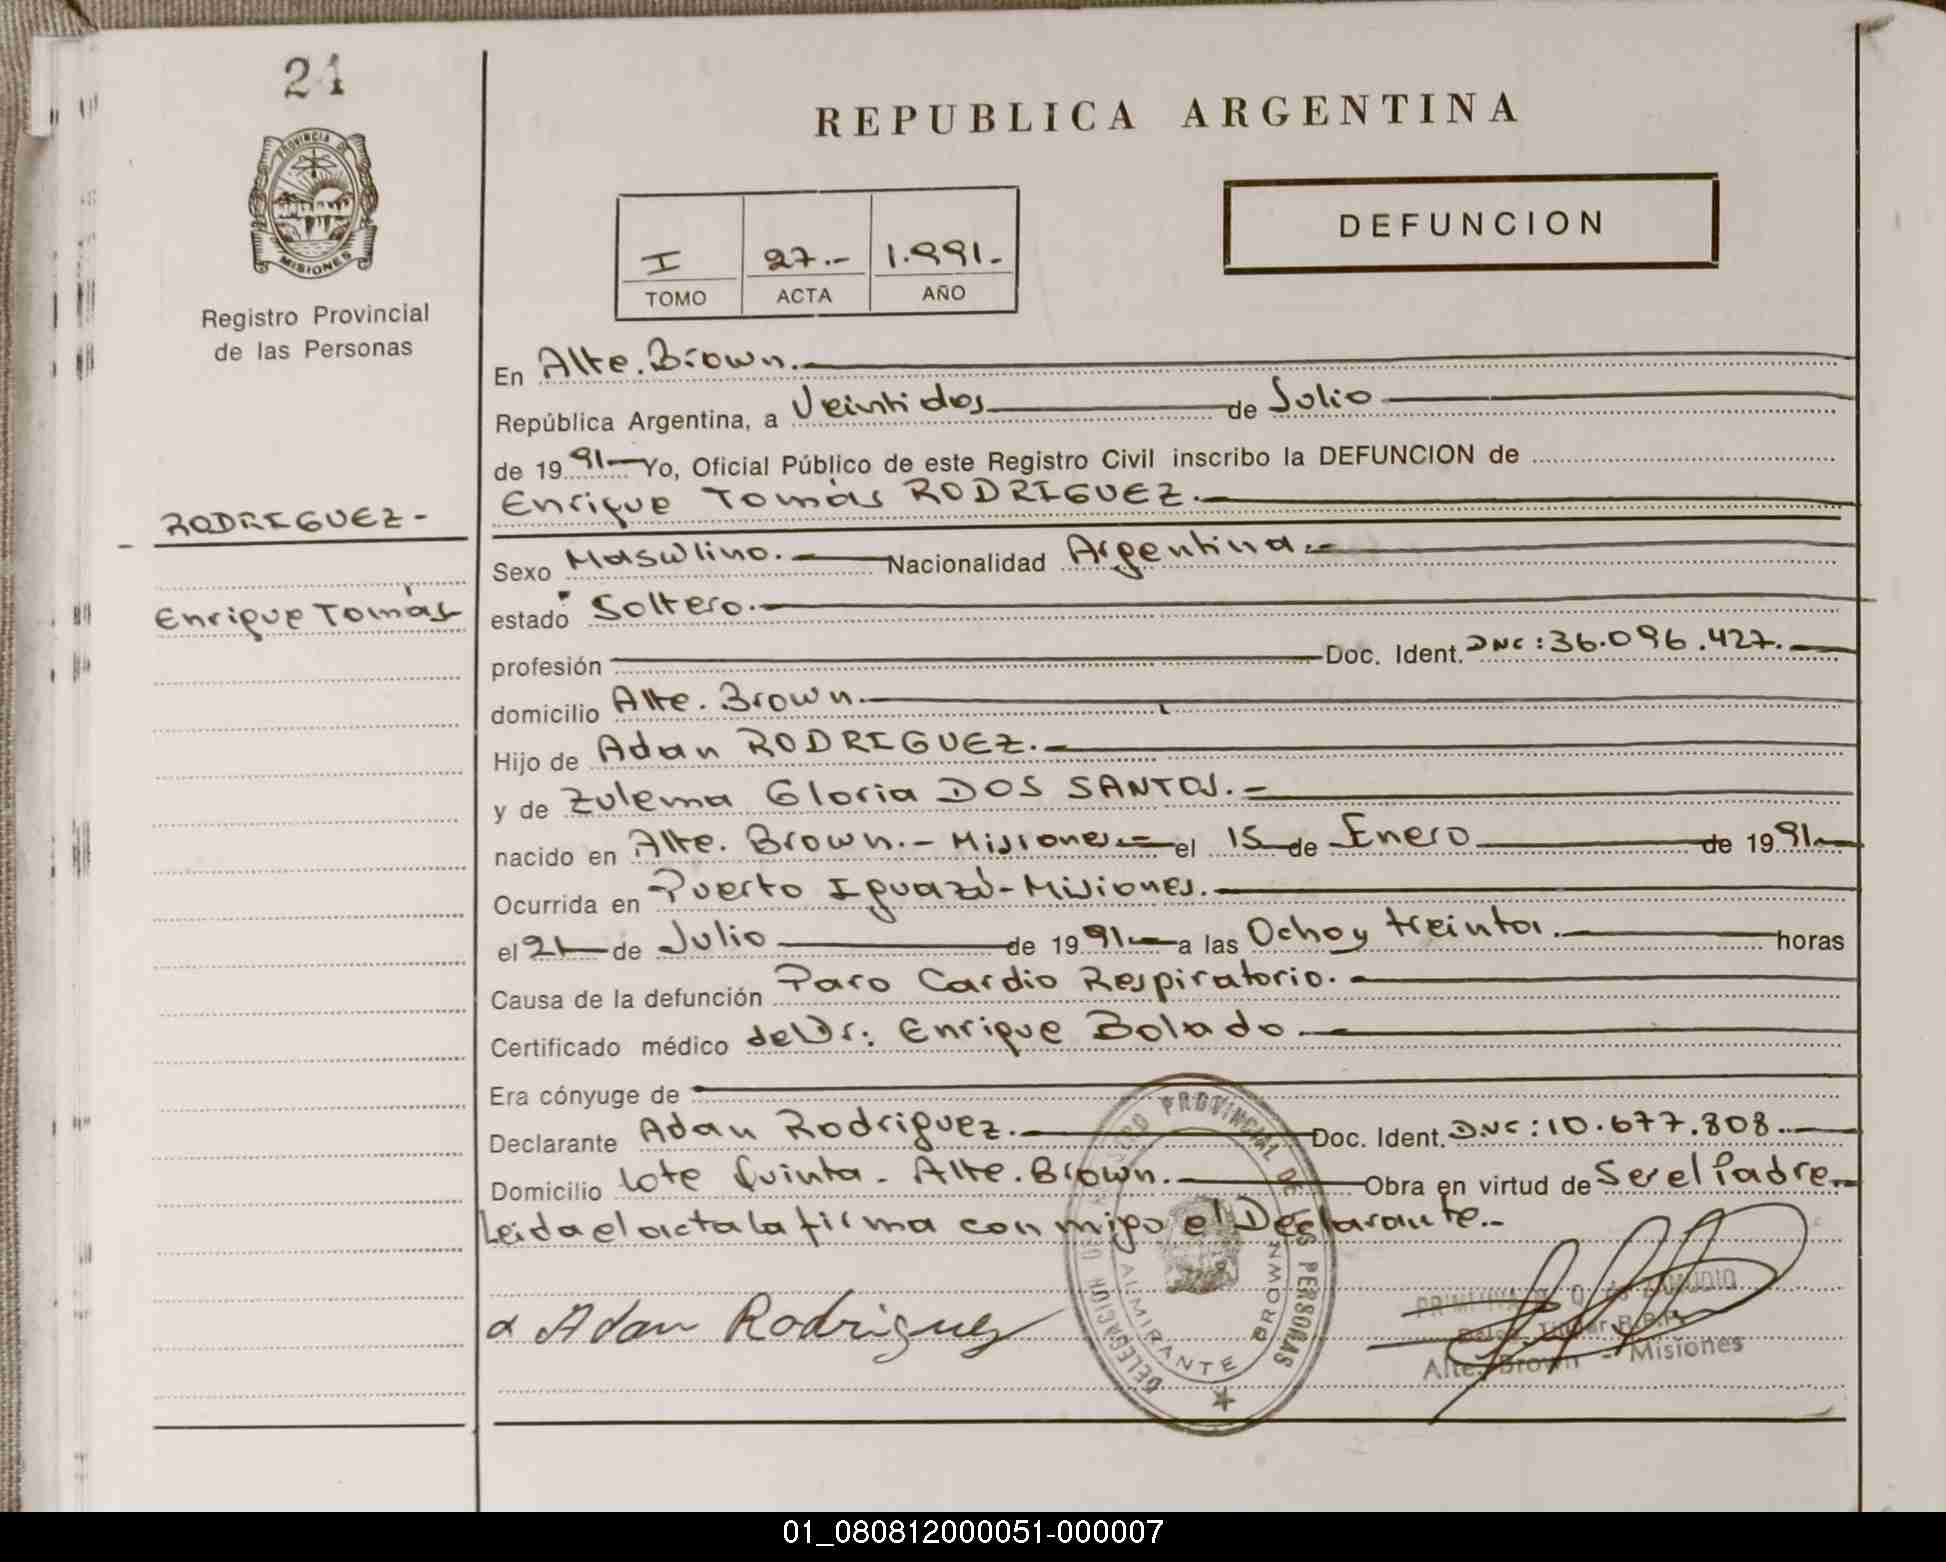 24
PROVINCIA DE
MISIONES
Registro Provincial
de las Personas
RODRIGUEZ-
Enrique Tomás
REPUBLICA ARGENTINA
DEFUNCION
I 27.- 1.991.-
TOMO ACTA AÑO
En Alte. Brown.
República Argentina, a Veintidos de Julio
de 19 91 Yo, Oficial Público de este Registro Civil inscribo la DEFUNCION de
Enrique Tomás RODRIGUEZ.
Sexo Masculino. Nacionalidad Argentina.-
estado Soltero.
profesión Doc. Ident. DNC: 36.096.427.
domicilio Alte. Brown.
Hijo de Adan RODRIGUEZ.
y de Zulema Gloria DOS SANTOS.-
nacido en Alte. Brown.- Misiones.- el 15 de Enero de 19 91.
Ocurrida en Puerto Iguazú-Misiones.
el 21 de Julio de 19 91. a las Ocho y treinta. horas
Causa de la defunción Paro Cardio Respiratorio.
Certificado médico del Dr: Enrique Bolado.
Era cónyuge de
Declarante Adan Rodriguez. Doc. Ident. DNC: 10.677.808.
Domicilio Lote Quinta - Alte. Brown. Obra en virtud de Ser el Padre.
Leida el acta la firma conmigo el Declarante.-
Adan Rodriguez
PROVINCIAL DE LAS PERSONAS
DELEGACION
ALMIRANTE BROWN
Alte. Brown - Misiones
01_080812000051-000007